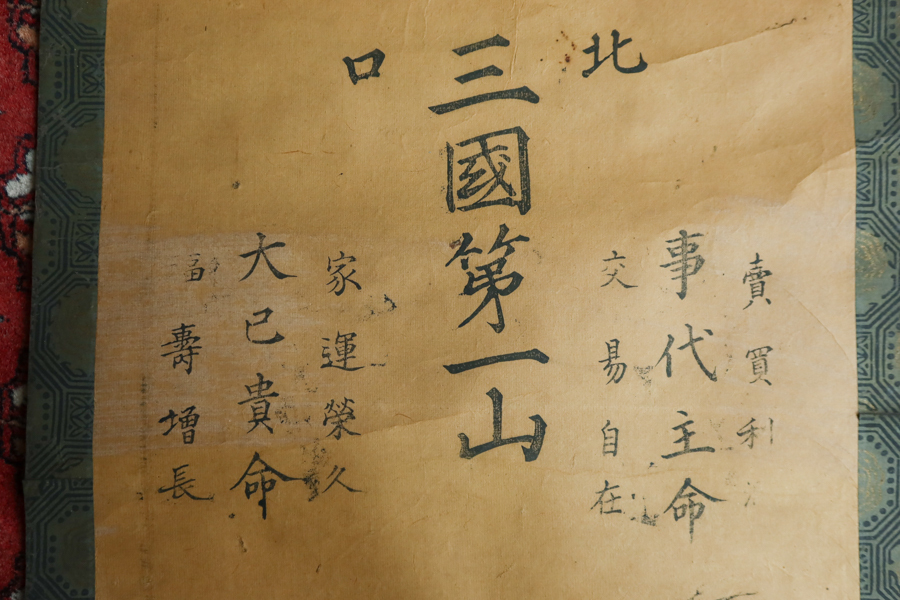 北口
賣買利
事代主命
交易自在
三國第一山
家運榮久
大已貴命
福壽增長